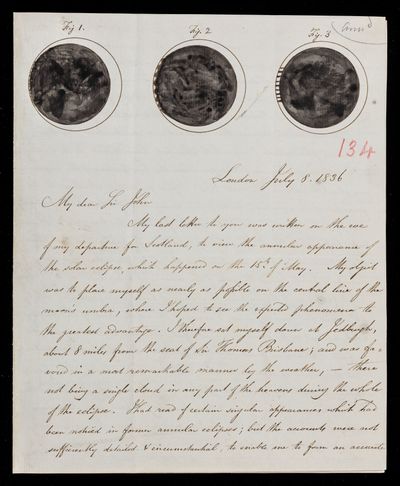 Fig 1.
Fig. 2
Fig. 3
134
London July 8. 1836
My dear Sir John
My last letter to you was written on the eve
of my departure for Scotland, to view the annular appearance of
the solar eclipse, which happened on the 15th of May. My object
was to place myself as nearly as possible on the central line of the
moon's umbra, where I hoped to see the expected phenomena to
the greatest advantage. I therefore set myself down at Jedburgh,
about 8 miles from the seat of Sir Thomas Brisbane; and was fa-
vored in a most remarkable manner by the weather, — there
not being a single cloud in any part of the heavens during the whole
of the eclipse. I had read of certain singular appearances which had
been noticed in former annular eclipses; but the accounts were not
sufficiently detailed & circumstantial, to enable me to form an accurate